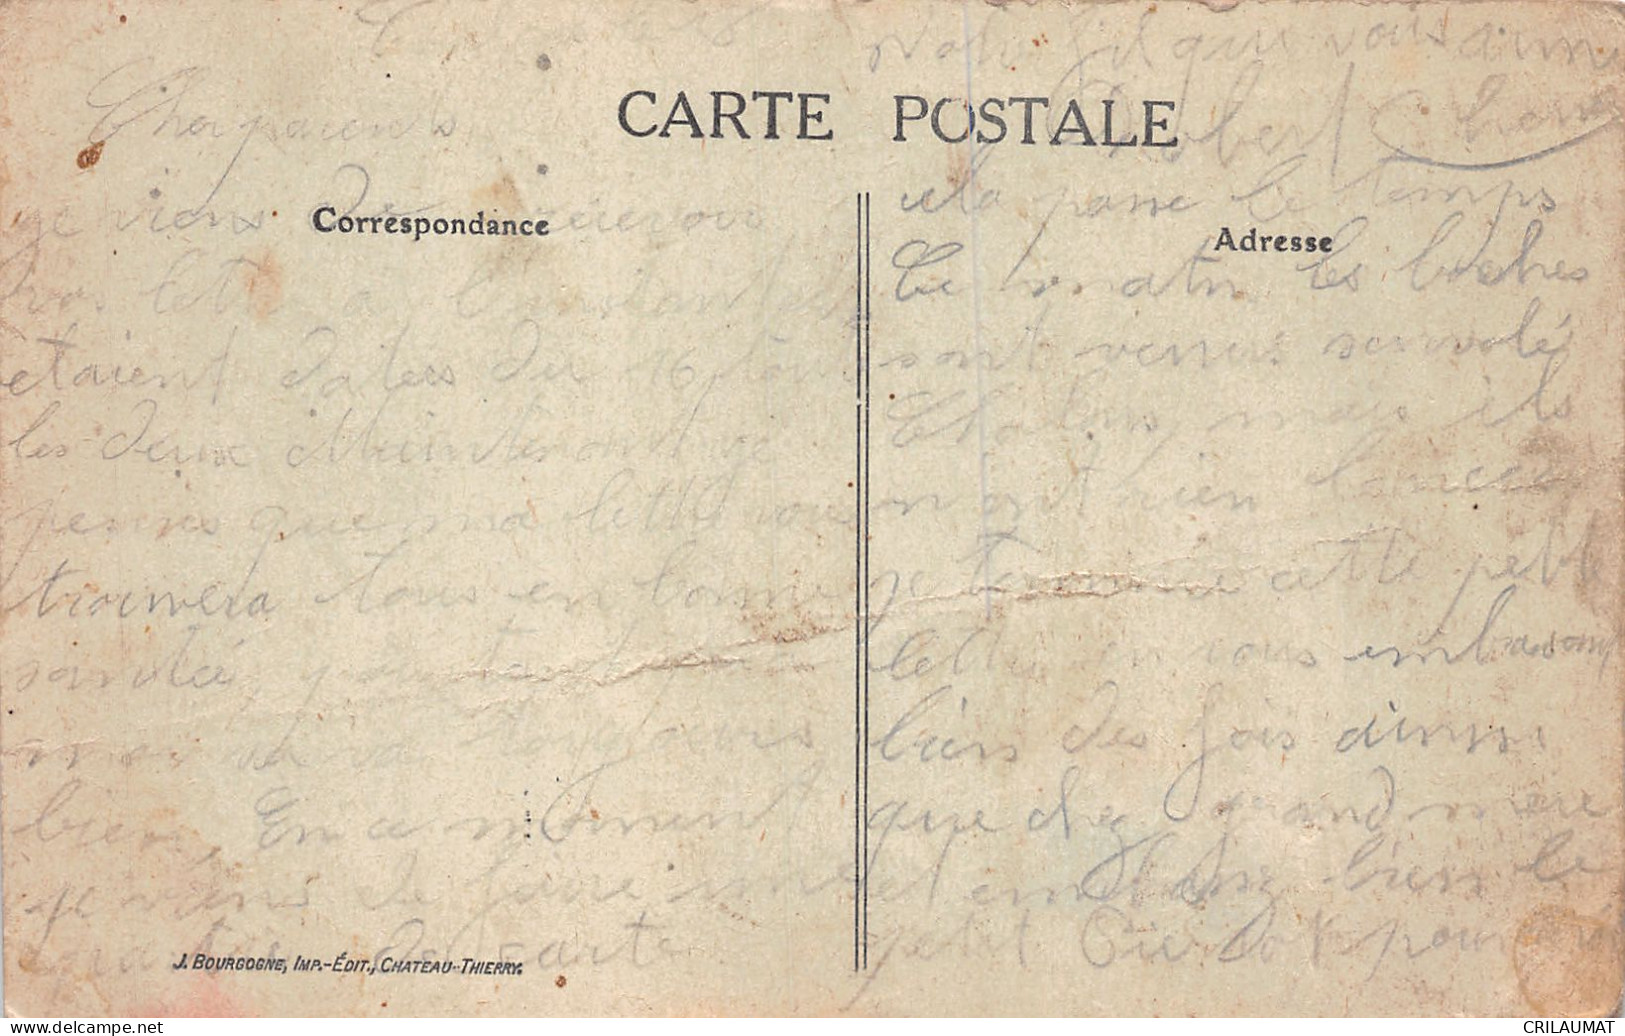 CARTE POSTALE
Correspondance
Adresse
Cher parents
je viens de recevoir
vos lettre a l'instant
etaient datees du 16
les deux Maintenant je
penses que ma lettre vous
trouvera tous en bonne
santée, pour
moi va toujours
bien. En ce moment
je viens de faire une
de carte
cela passe le temps
Ce matin les boches
sont venus survolé
Chalons mais ils
n'ont rien lancée
je termine cette petite
lettre en vous embrasant
bien des fois ainsi
que chez grand mère
et embrassez bien le
petit Pierrot pour moi
Votre fils que vous aime
Robert
J. BOURGOGNE, IMP.-ÉDIT., CHATEAU-THIERRY.
CRILAUMAT